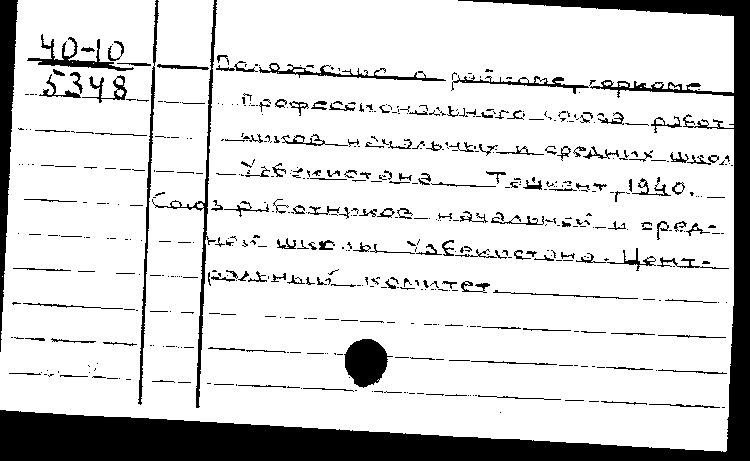 40-10
5348
Положение о райкоме, горкоме
Профессионального союза работ-
ников начальных и средних школ
Узбекистана. Ташкент, 1940.
Союз работников начальной и сред-
ней школы Узбекистана. Цент-
ральный комитет.